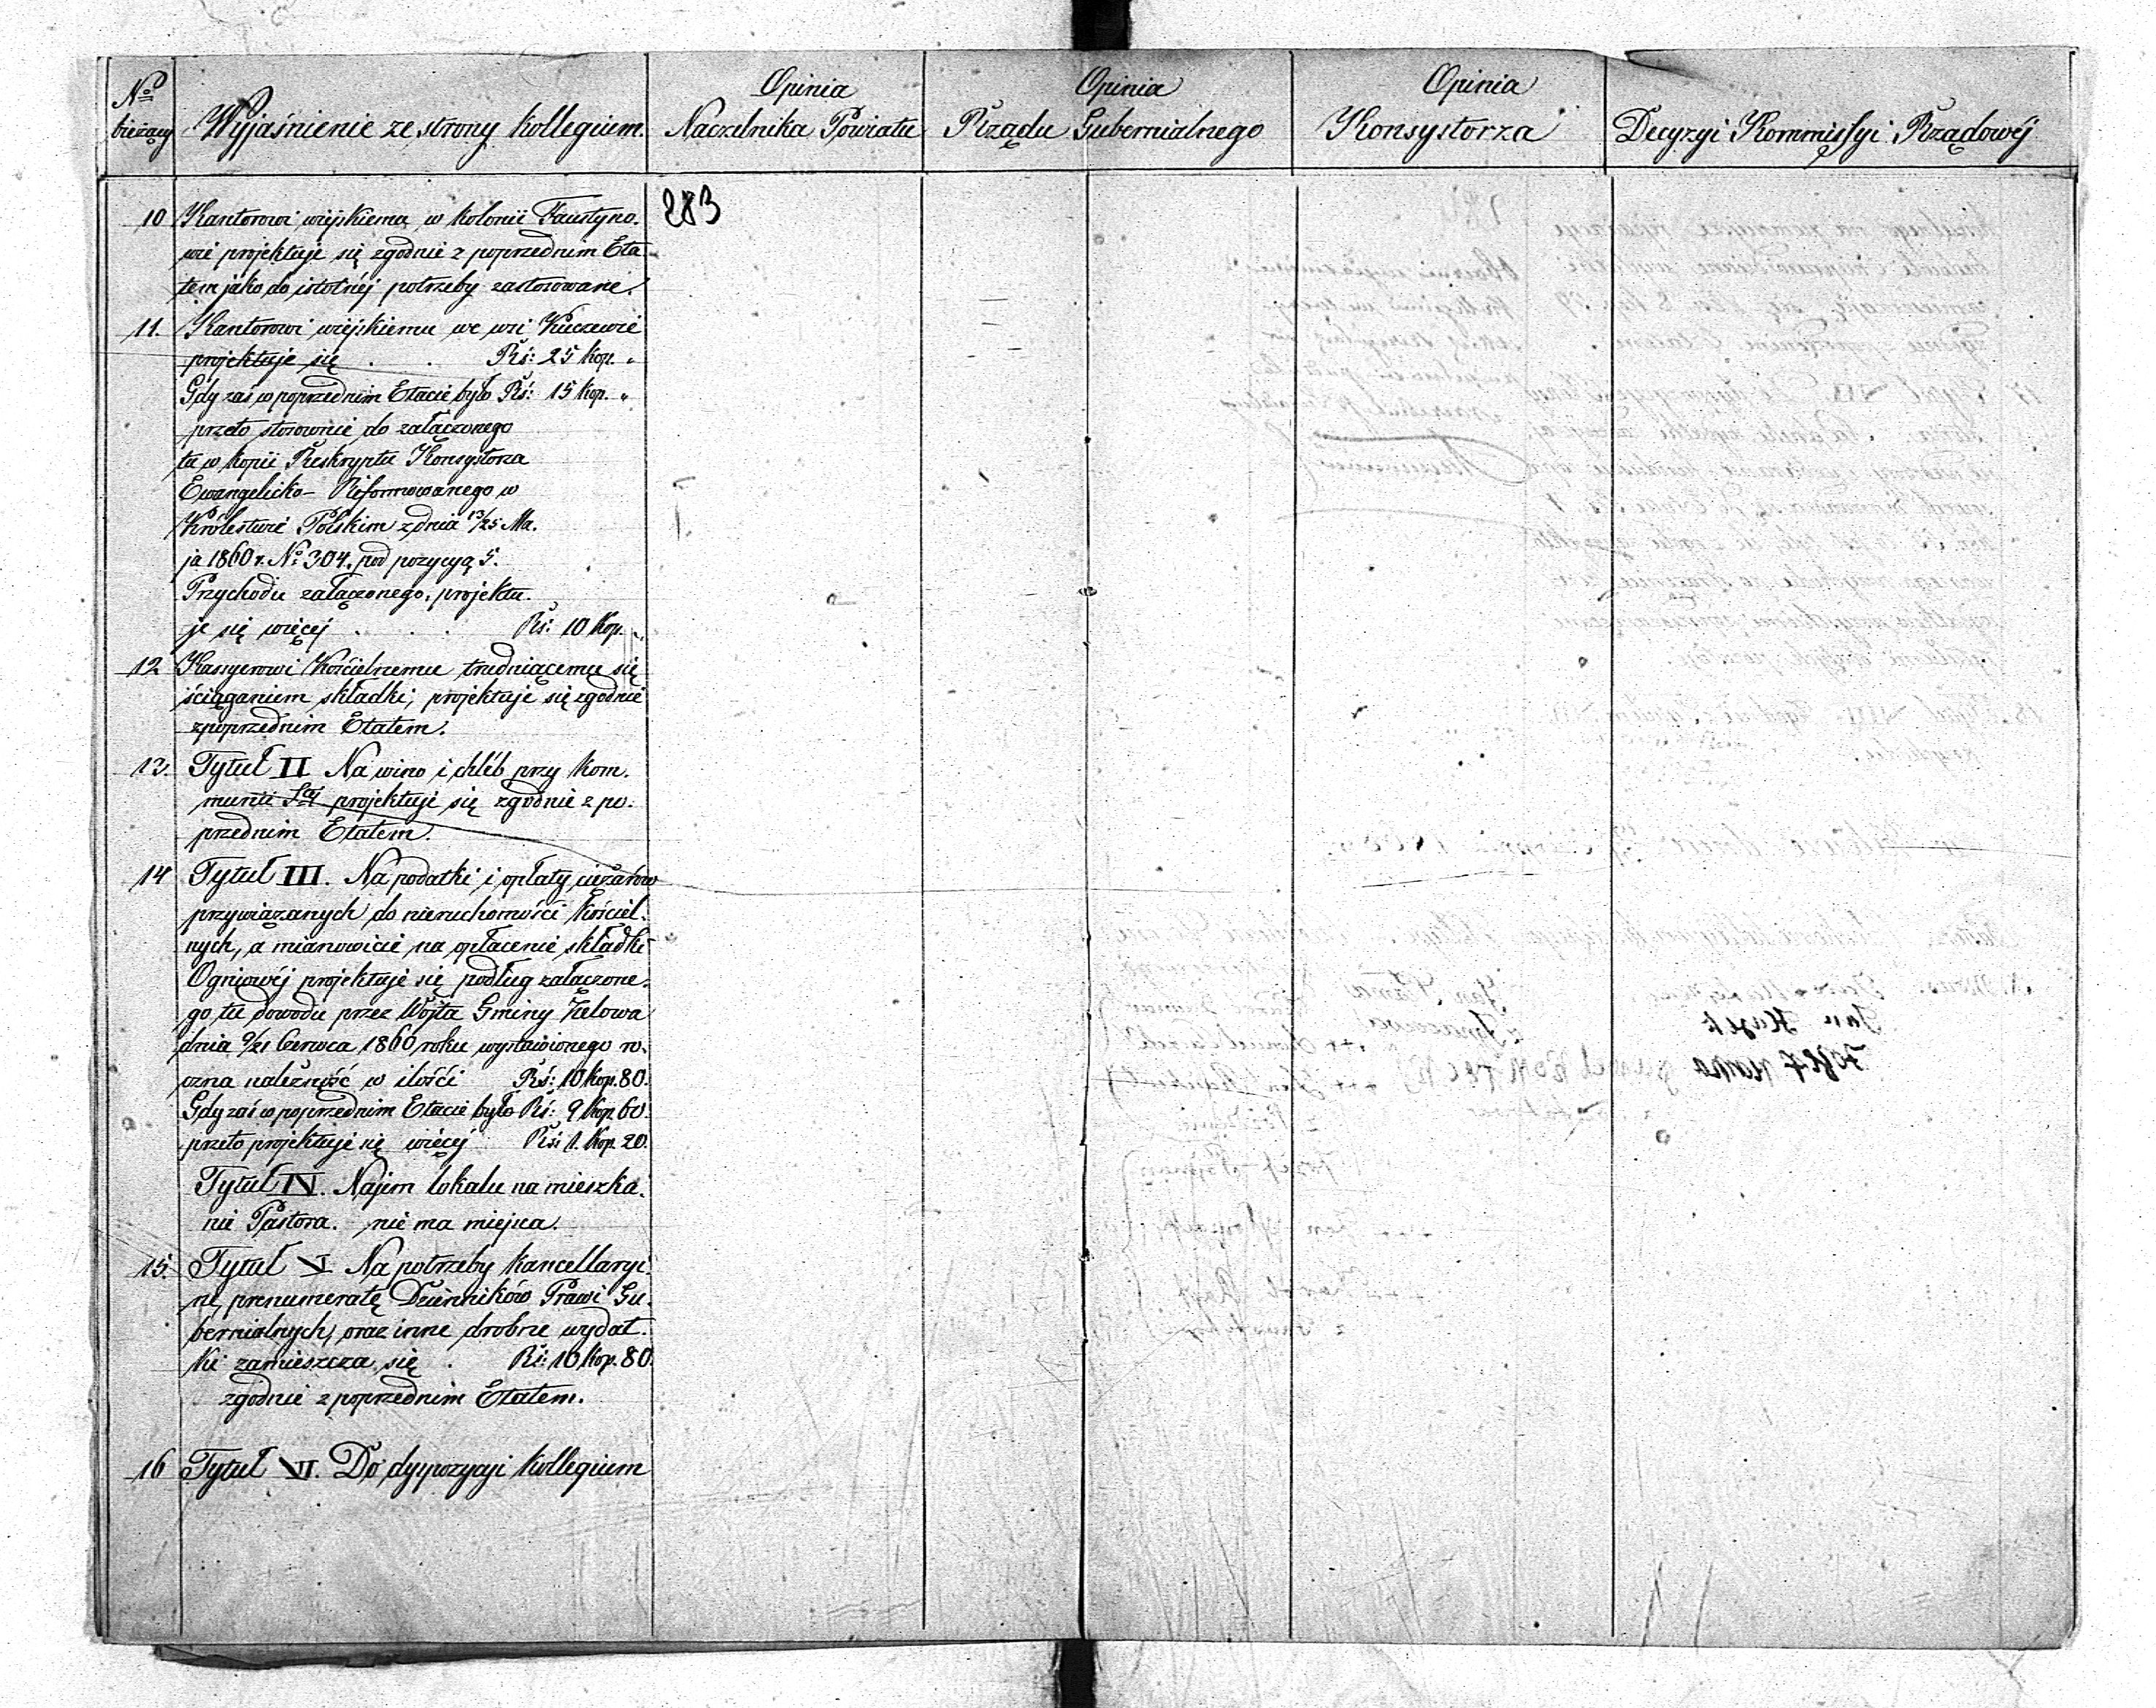 No bieżący
Wyjaśnienie ze strony kollegium.
Opinia
Naczelnika Powiatu
Opinia
Rządu Gubernialnego
Opinia
Konsystorza
Decyzyi Kommissyi Rządowéj
283
10 Kantorowi wiejskiemu w kolonii Faustyno-
wie projektuje się zgodnie z poprzednim Eta-
tem jako do istotnéj potrzeby zastosowane.
11. Kantorowi wiejskiemu we wsi Kuczewie
projektuje się . . Rś: 25 kop. „
Gdy zaś w poprzednim Etacie było Rś: 15 kop. „
przeto stosownie do załączonego
tu w kopii Reskryptu Konsystorza
Ewangelicko-Reformowanego w
Królestwie Polskim z dnia 13/25 Ma-
ja 1860 r. No 304. pod pozycyą 5.
Przychodu załączonego, projektu-
je się więcej . . . Rś: 10 Kop. „
12 Kassyerowi Kościelnemu trudniącemu się
ściąganiem składki, projektuje się zgodnie
z poprzednim Etatem.
13. Tytuł II Na wino i chléb przy kom-
munii Stej projektuje się zgodnie z po-
przednim Etatem.
14 Tytuł III. Na podatki i opłaty ciężarów
przywiązanych do nieruchomości Kościel-
nych, a mianowicie na opłacenie składki
Ogniowéj projektuje się podług załączone-
go tu dowodu przez Wójta Gminy Zelowa
dnia 9/21 Czerwca 1860 roku wystawionego ro-
czna należność w ilości Rś: 10 kop. 80.
Gdy zaś w poprzednim Etacie było Rś: 9 kop. 60.
przeto projektuje się więcéj Rś: 1. Kop. 20.
Tytuł IV. Najem lokalu na mieszka-
nie Pastora. - nie ma miejsca.
15. Tytuł V Na potrzeby kancellaryi-
ne, prenumeratę Dzienników Praw i Gu-
bernialnych, oraz inne drobne wydat-
ki zamieszcza się . Rś: 10 kop. 80.
zgodnie z poprzednim Etatem.
16 Tytuł VI. Do dyspozycyi kollegium